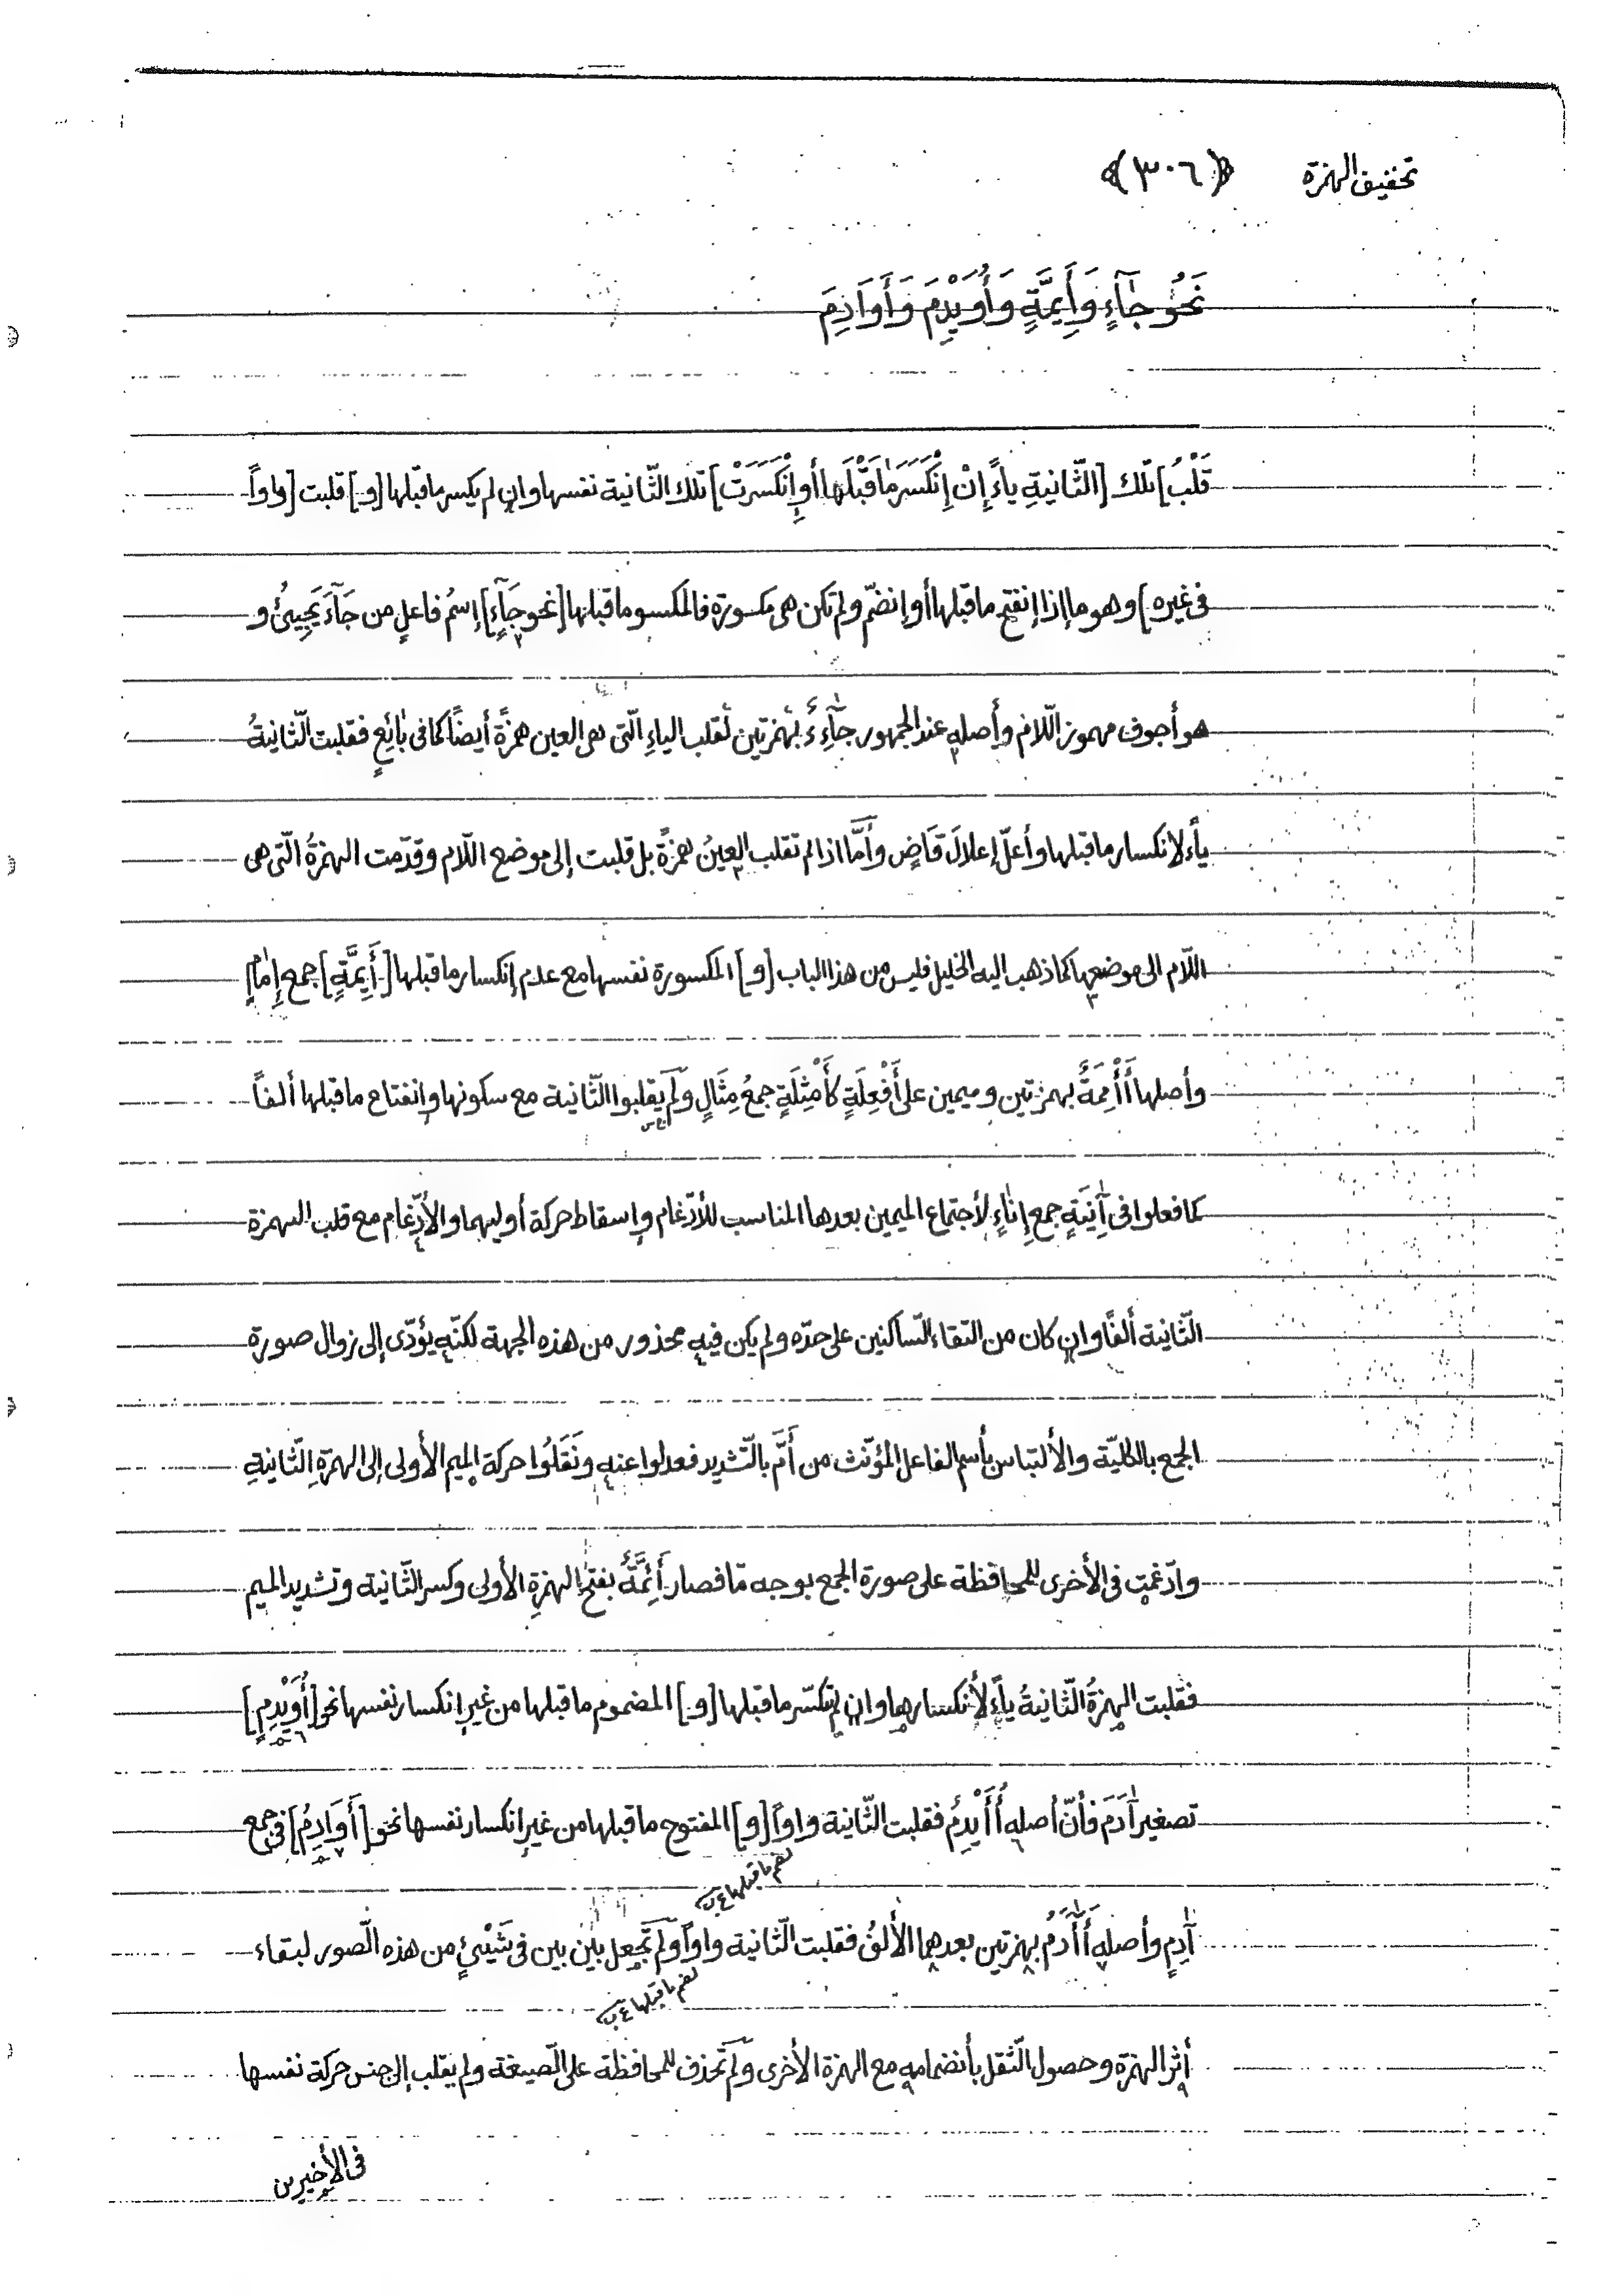 تخفيف الهمزة ﴿٣٠٦﴾
نَحْوُ جَآءٍ وَأَيِمَّةٍ وَأُوَيْدِمَ وَأَوَادِمَ
قَلْبُ] تلك [الثّانيةِ ياءً إِنْ إِنْكَسَرَ مَا قَبْلَهَا أَوِ إِنْكَسَرَتْ] تلك الثّانية نفسها وإن لم يكسر ما قبلها [و] قلبت [واواً
فى غيره] وهو ما إذا إنفتح ما قبلها أو إنضمّ ولم تكن هى مكسورة فالمكسو ما قبلها [نحو جَآءٍ] إسمُ فاعلٍ من جَآءَ يَجِيئُ و
هو أجوف مهموز اللّام وأصله عند الجمهور جَآءِءٌ بهمزتين لقلب الياءِ الّتى هى العين همزةً أيضاً كما فى بٰائِعٍ فقلبت الثّانيةُ
ياءً لانكسار ما قبلها وأعلّ إعلالَ قَاضٍ وأَمَّا اذا لم تقلب العينُ همزةً بل قلبت إلى موضع اللّام وقدّمت الهمزةُ الّتى هى
اللّام الى موضعها كما ذهب اليه الخليل فليس من هذا الباب [و] المكسورة نفسها مع عدم إنكسار ما قبلها [أَيِمَّةٍ] جمع إِمٰامٍ
وأصلها أَأْمِمَةٌ بهمزتين وميمين على أَفْعِلَةٍ كأَمْثِلَةٍ جمعُ مِثَالٍ وَلَم يقلبوا الثّانية مع سكونها وإنفتاح ما قبلها ألفاً
كما فعلوا فى آنِيَةٍ جمع إِنٰاءٍ لأجتماع الميمين بعدها المناسب للأدّغام وإسقاط حركة أوليهما والأدّغام مع قلب الهمزة
الثّانية ألفًا وإن كان من التقاء السّاكنين على حدّه ولم يكن فيه محذور من هذه الجهة لكنّه يؤدّى إلى زوال صورة
الجمع بالكليّة والألتباس بأسم الفاعل المؤنّث من أَمَّ بالتّشديد فعدلوا عنه ونَقَلُوا حركة الميم الأولى إلى الهمزةِ الثّانيةِ
وادّغمت فى الأخرى للمحافظة على صورة الجمع بوجه مّا فصار أَئِمَّةٌ بفتح الهمزةِ الأولى وكسر الثّانية وتشديد الميم
فقلبت الهمزةُ الثّانيةُ ياءً لأنكسارها وإن لم تكسّر ما قبلها [و] المضموم ما قبلها من غير إنكسار نفسها نحو [أُوَيْدِمٍ]
تصغير آدَمَ فأنّ أصله أُأَيْدِمُ فقلبت الثّانية واواً [و] المفتوح ما قبلها من غير إنكسار نفسها نحو [أَوَادِمُ] فى جمع
لضم ما قبلها
آدمٍ وأصله أَأَادِمُ بهمزتين بعدهما الألفُ فقلبت الثّانية واواً ولَم تَجعل بين بين فى شَيْئٍ من هذه الصّور لبقاء
لضم ما قبلها
أثر الهمزة وحصول الثّقل بأنضمامه مع الهمزة الأخرى وَلَم تحذف للمحافظة على الصّيغة ولم يقلب إلى جنس حركة نفسها
فى الأخيرين